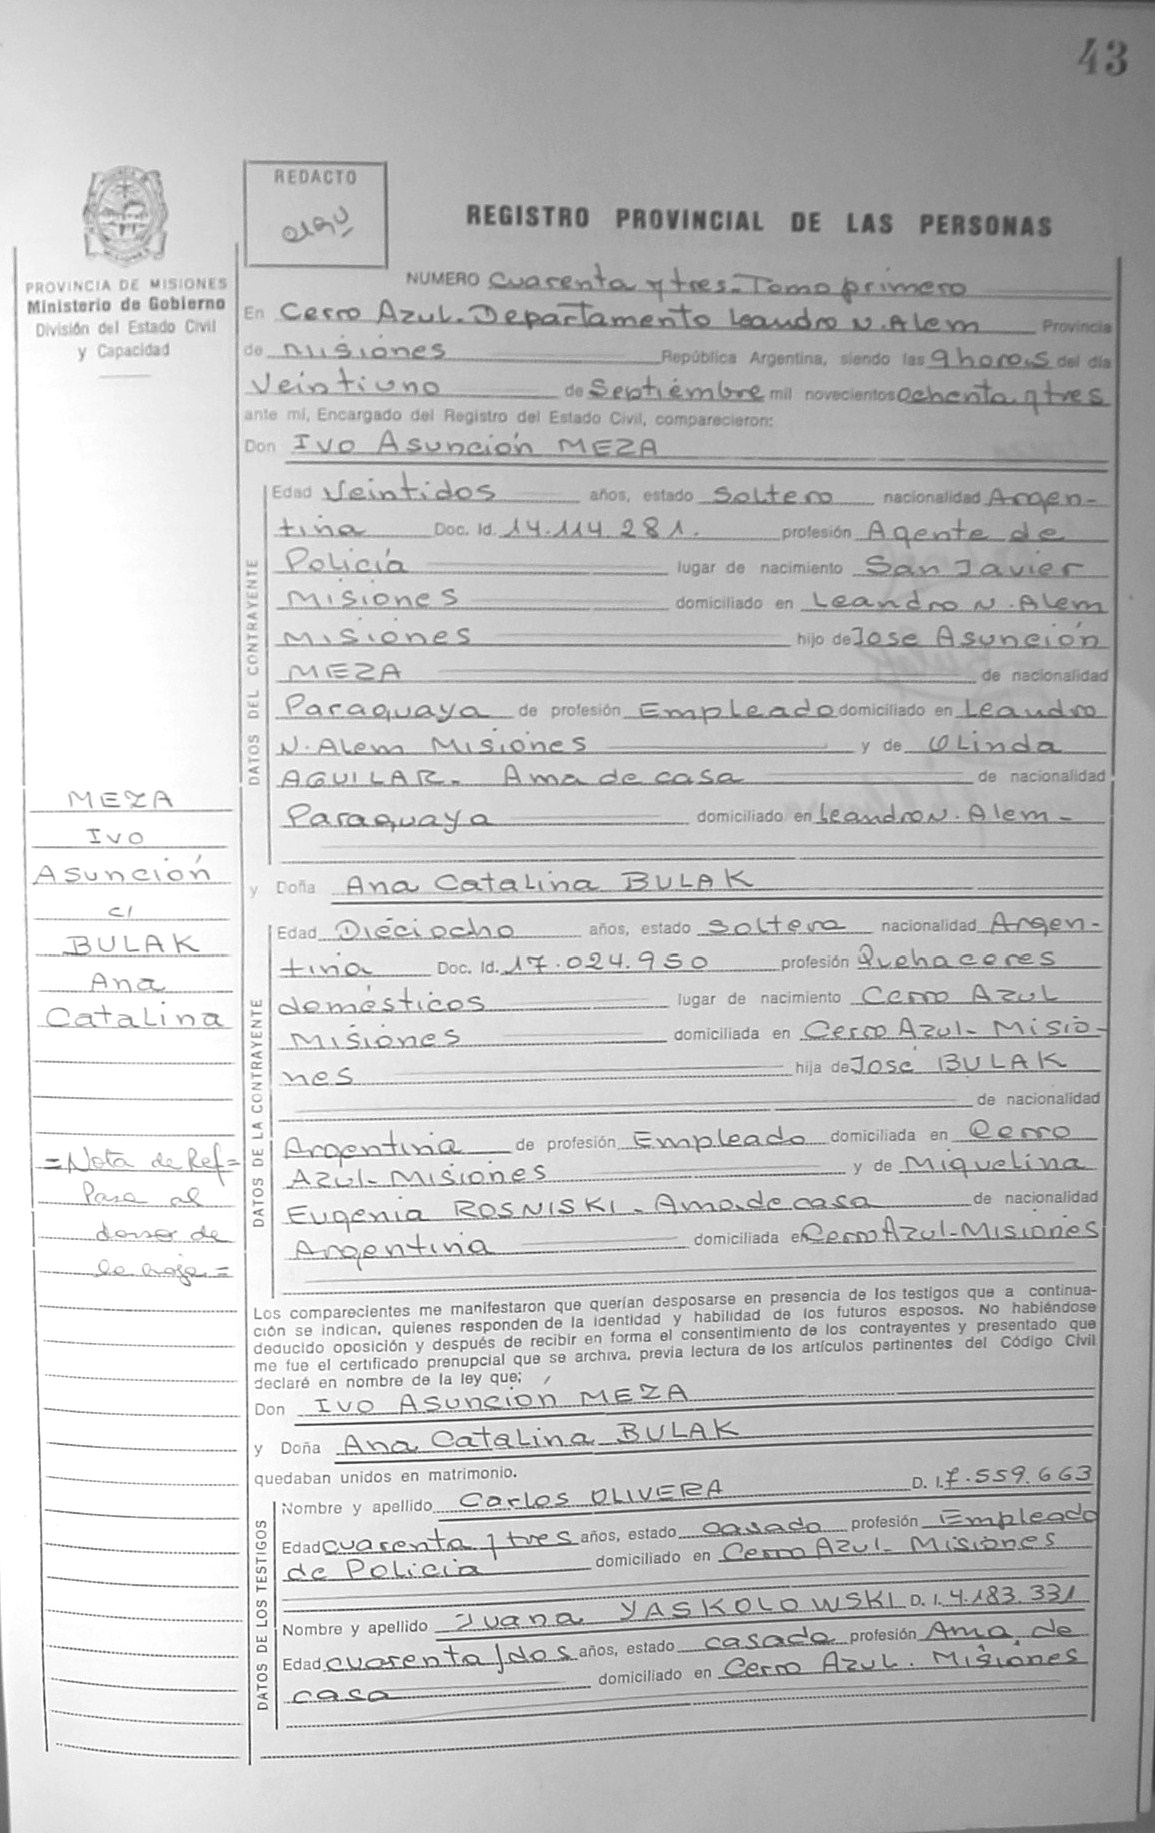 43
REDACTO
REGISTRO PROVINCIAL DE LAS PERSONAS
PROVINCIA DE MISIONES
Ministerio de Gobierno
División del Estado Civil
y Capacidad
NUMERO Cuarenta y tres - Tomo primero
En Cerro Azul - Departamento Leandro N. Alem Provincia
de Misiones República Argentina, siendo las 9 horas del día
Veintiuno de Septiembre mil novecientos ochenta y tres
ante mí, Encargado del Registro del Estado Civil, comparecieron:
Don Ivo Asunción MEZA
DATOS DEL CONTRAYENTE
Edad Veintidos años, estado Soltero nacionalidad Argen-
tina Doc. Id. 14.114.281. profesión Agente de
Policía lugar de nacimiento San Javier
Misiones domiciliado en Leandro N. Alem
Misiones hijo de Jose Asunción
MEZA de nacionalidad
Paraguaya de profesión Empleado domiciliado en Leandro
N. Alem Misiones y de Olinda
AGUILAR - Ama de casa de nacionalidad
Paraguaya domiciliado en Leandro N. Alem -
y Doña Ana Catalina BULAK
DATOS DE LA CONTRAYENTE
Edad Dieciocho años, estado Soltera nacionalidad Argen-
tina Doc. Id. 17.024.950 profesión Quehaceres
domésticos lugar de nacimiento Cerro Azul
Misiones domiciliada en Cerro Azul - Misio-
nes hija de José BULAK
de nacionalidad
Argentina de profesión Empleado domiciliada en Cerro
Azul - Misiones y de Miquelina
Eugenia ROSNISKI - Ama de casa de nacionalidad
Argentina domiciliada en Cerro Azul - Misiones
MEZA
Ivo
Asunción
c/
BULAK
Ana
Catalina
= Nota de Ref =
Pasa al
dorso de
la hoja =
Los comparecientes me manifestaron que querían desposarse en presencia de los testigos que a continua-
ción se indican, quienes responden de la identidad y habilidad de los futuros esposos. No habiéndose
deducido oposición y después de recibir en forma el consentimiento de los contrayentes y presentado que
me fue el certificado prenupcial que se archiva, previa lectura de los artículos pertinentes del Código Civil
declaré en nombre de la ley que;
Don Ivo Asuncion MEZA
y Doña Ana Catalina BULAK
quedaban unidos en matrimonio.
DATOS DE LOS TESTIGOS
Nombre y apellido Carlos OLIVERA D. I. 7.559.663
Edad cuarenta y tres años, estado casado profesión Empleado
de Policia domiciliado en Cerro Azul - Misiones
Nombre y apellido Juana YASKOLOWSKI D. I. 4.183.331
Edad cuarenta y dos años, estado casada profesión Ama de
casa domiciliado en Cerro Azul. Misiones